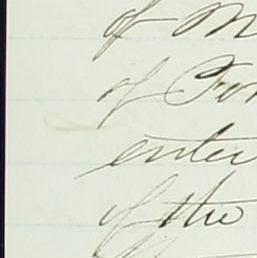 of M
of For
enter
of the